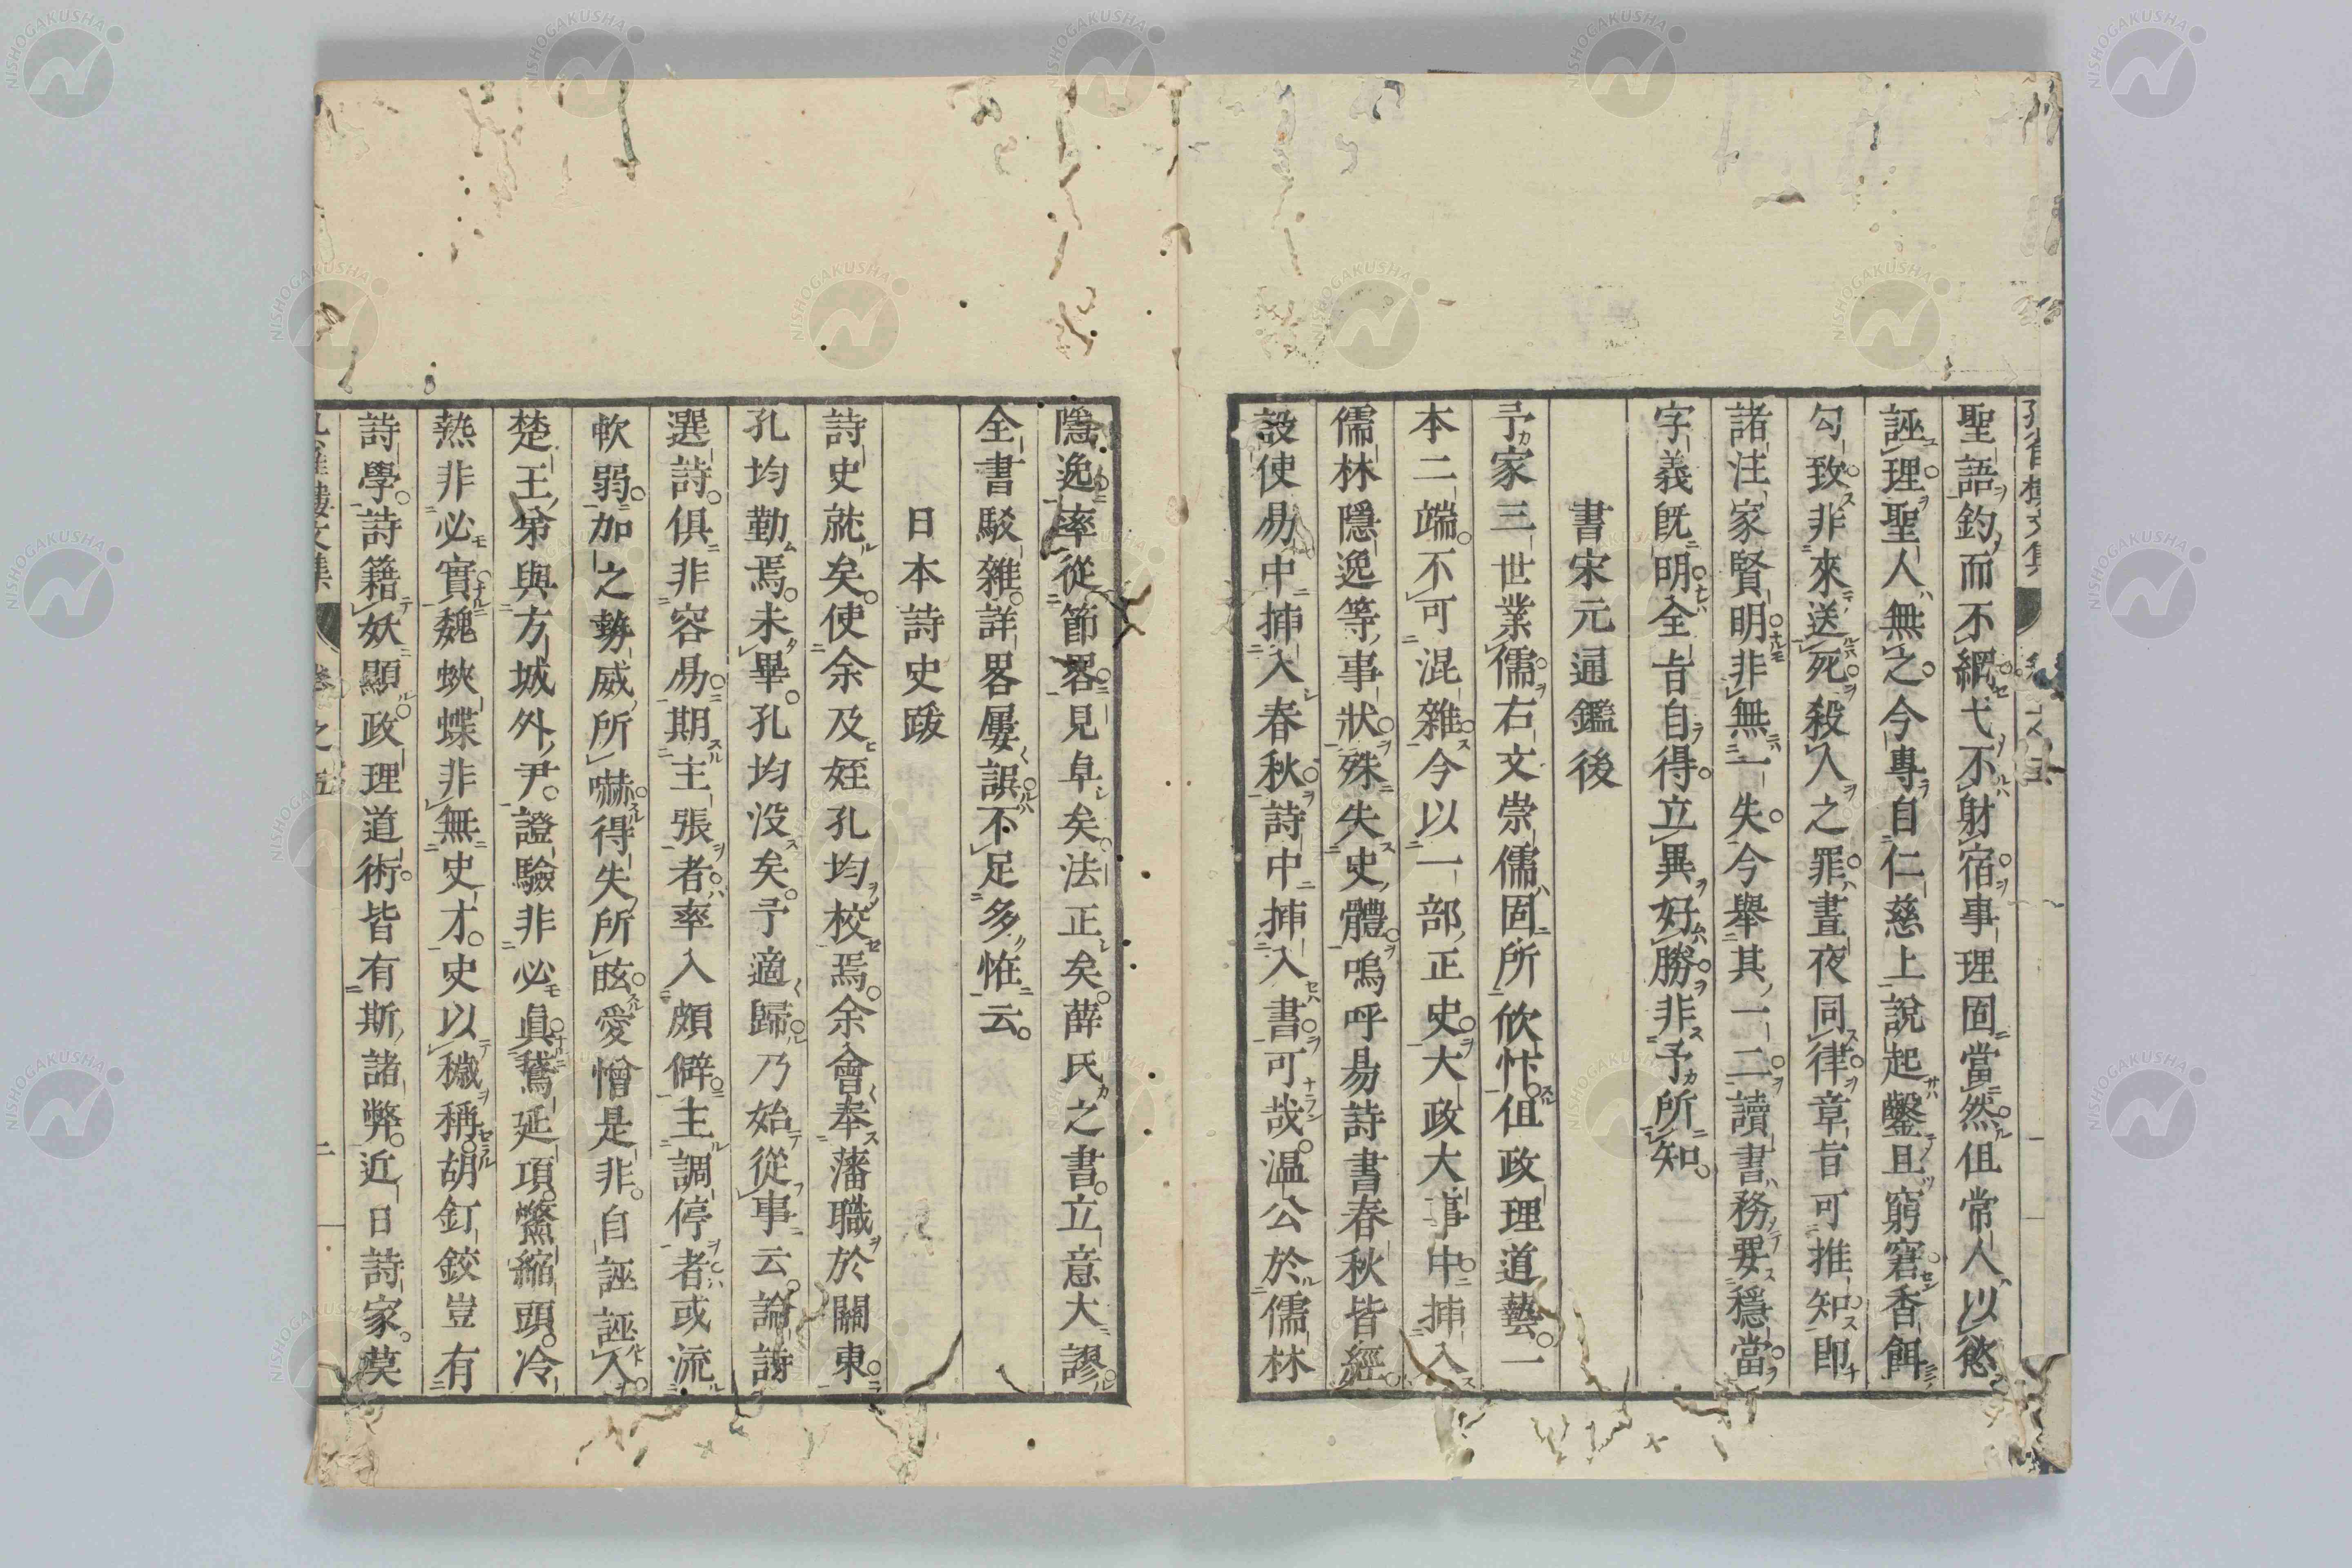 聖語釣而不綱弋不射宿事理固當然但常人以慾
誣理聖人無之今專自仁慈上說起鑿且窮窘香餌
勾致非來送死殺人之罪晝夜同律章旨可推知即
諸注家賢明非無一失今舉其一二讀書務要穩當
字義旣明全旨自得立異好勝非予所知
書宋元通鑑後
予家三世業儒右文崇儒固所欣忭但政理道藝一
本二端不可混雜今以一部正史大政大事中揷入
儒林隱逸等事狀殊失史體嗚呼易詩書春秋皆經
設使易中揷入春秋詩中揷入書可哉溫公於儒林
隱逸率從節畧見卓矣法正矣薛氏之書立意大謬
全書駁雜詳畧屢誤不足多恠云
日本詩史跋
詩史就矣使余及姪孔均校焉余會奉藩職於關東
孔均勤焉未畢孔均沒矣予適歸乃始從事云論詩
選詩俱非容易期主張者率入頗僻主調停者或流
軟弱加之勢威所嚇得失所眩愛憎是非自誣誣人
楚王弟與方城外尹證驗非必眞鵞延項鱉縮頭冷
熱非必實魏蛺蝶非無史才史以穢稱胡釘鉸豈有
詩學詩籍妖顯政理道術皆有斯諸弊近日詩家莫
NISHOGAKUSHA